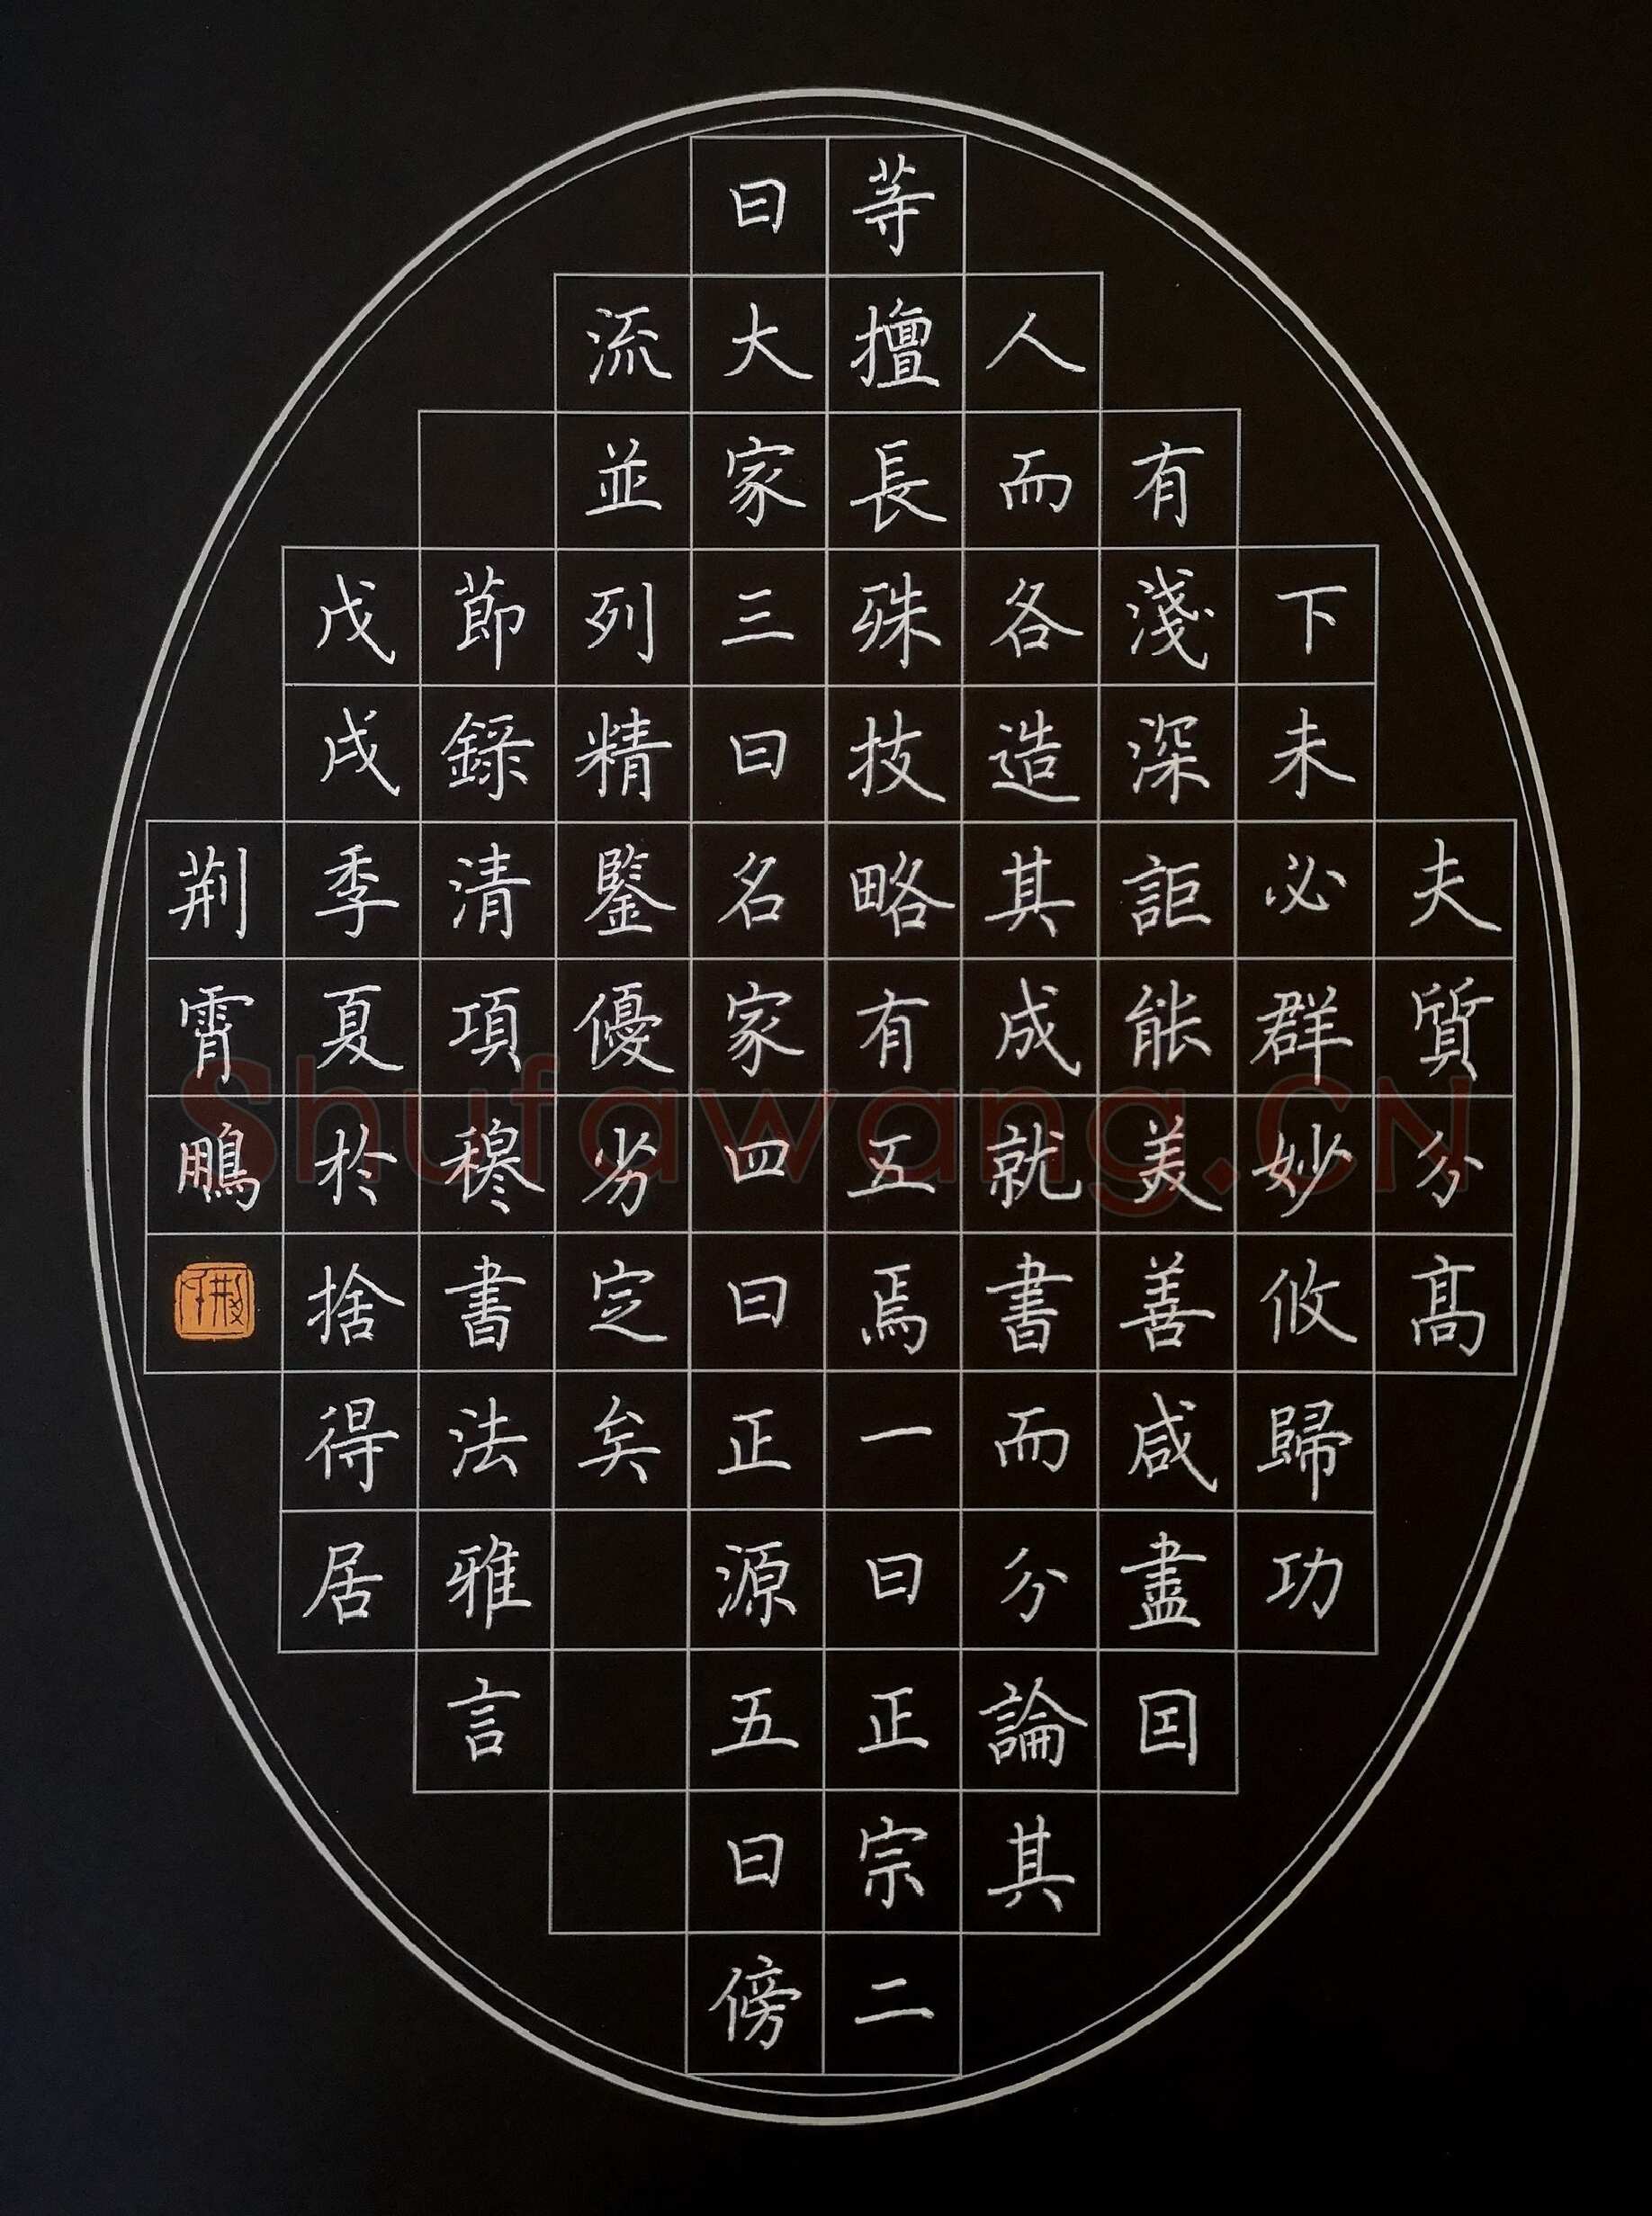 夫質分高
下未必群妙攸歸功
有淺深詎能美善咸盡因
人而各造其成就書而分論其
等擅長殊技略有五焉一曰正宗二
曰大家三曰名家四曰正源五曰傍
流並列精鑒優劣定矣
節錄清項穆書法雅言
戊戌季夏於捨得居
荊霄鵬
Shufawang.CN